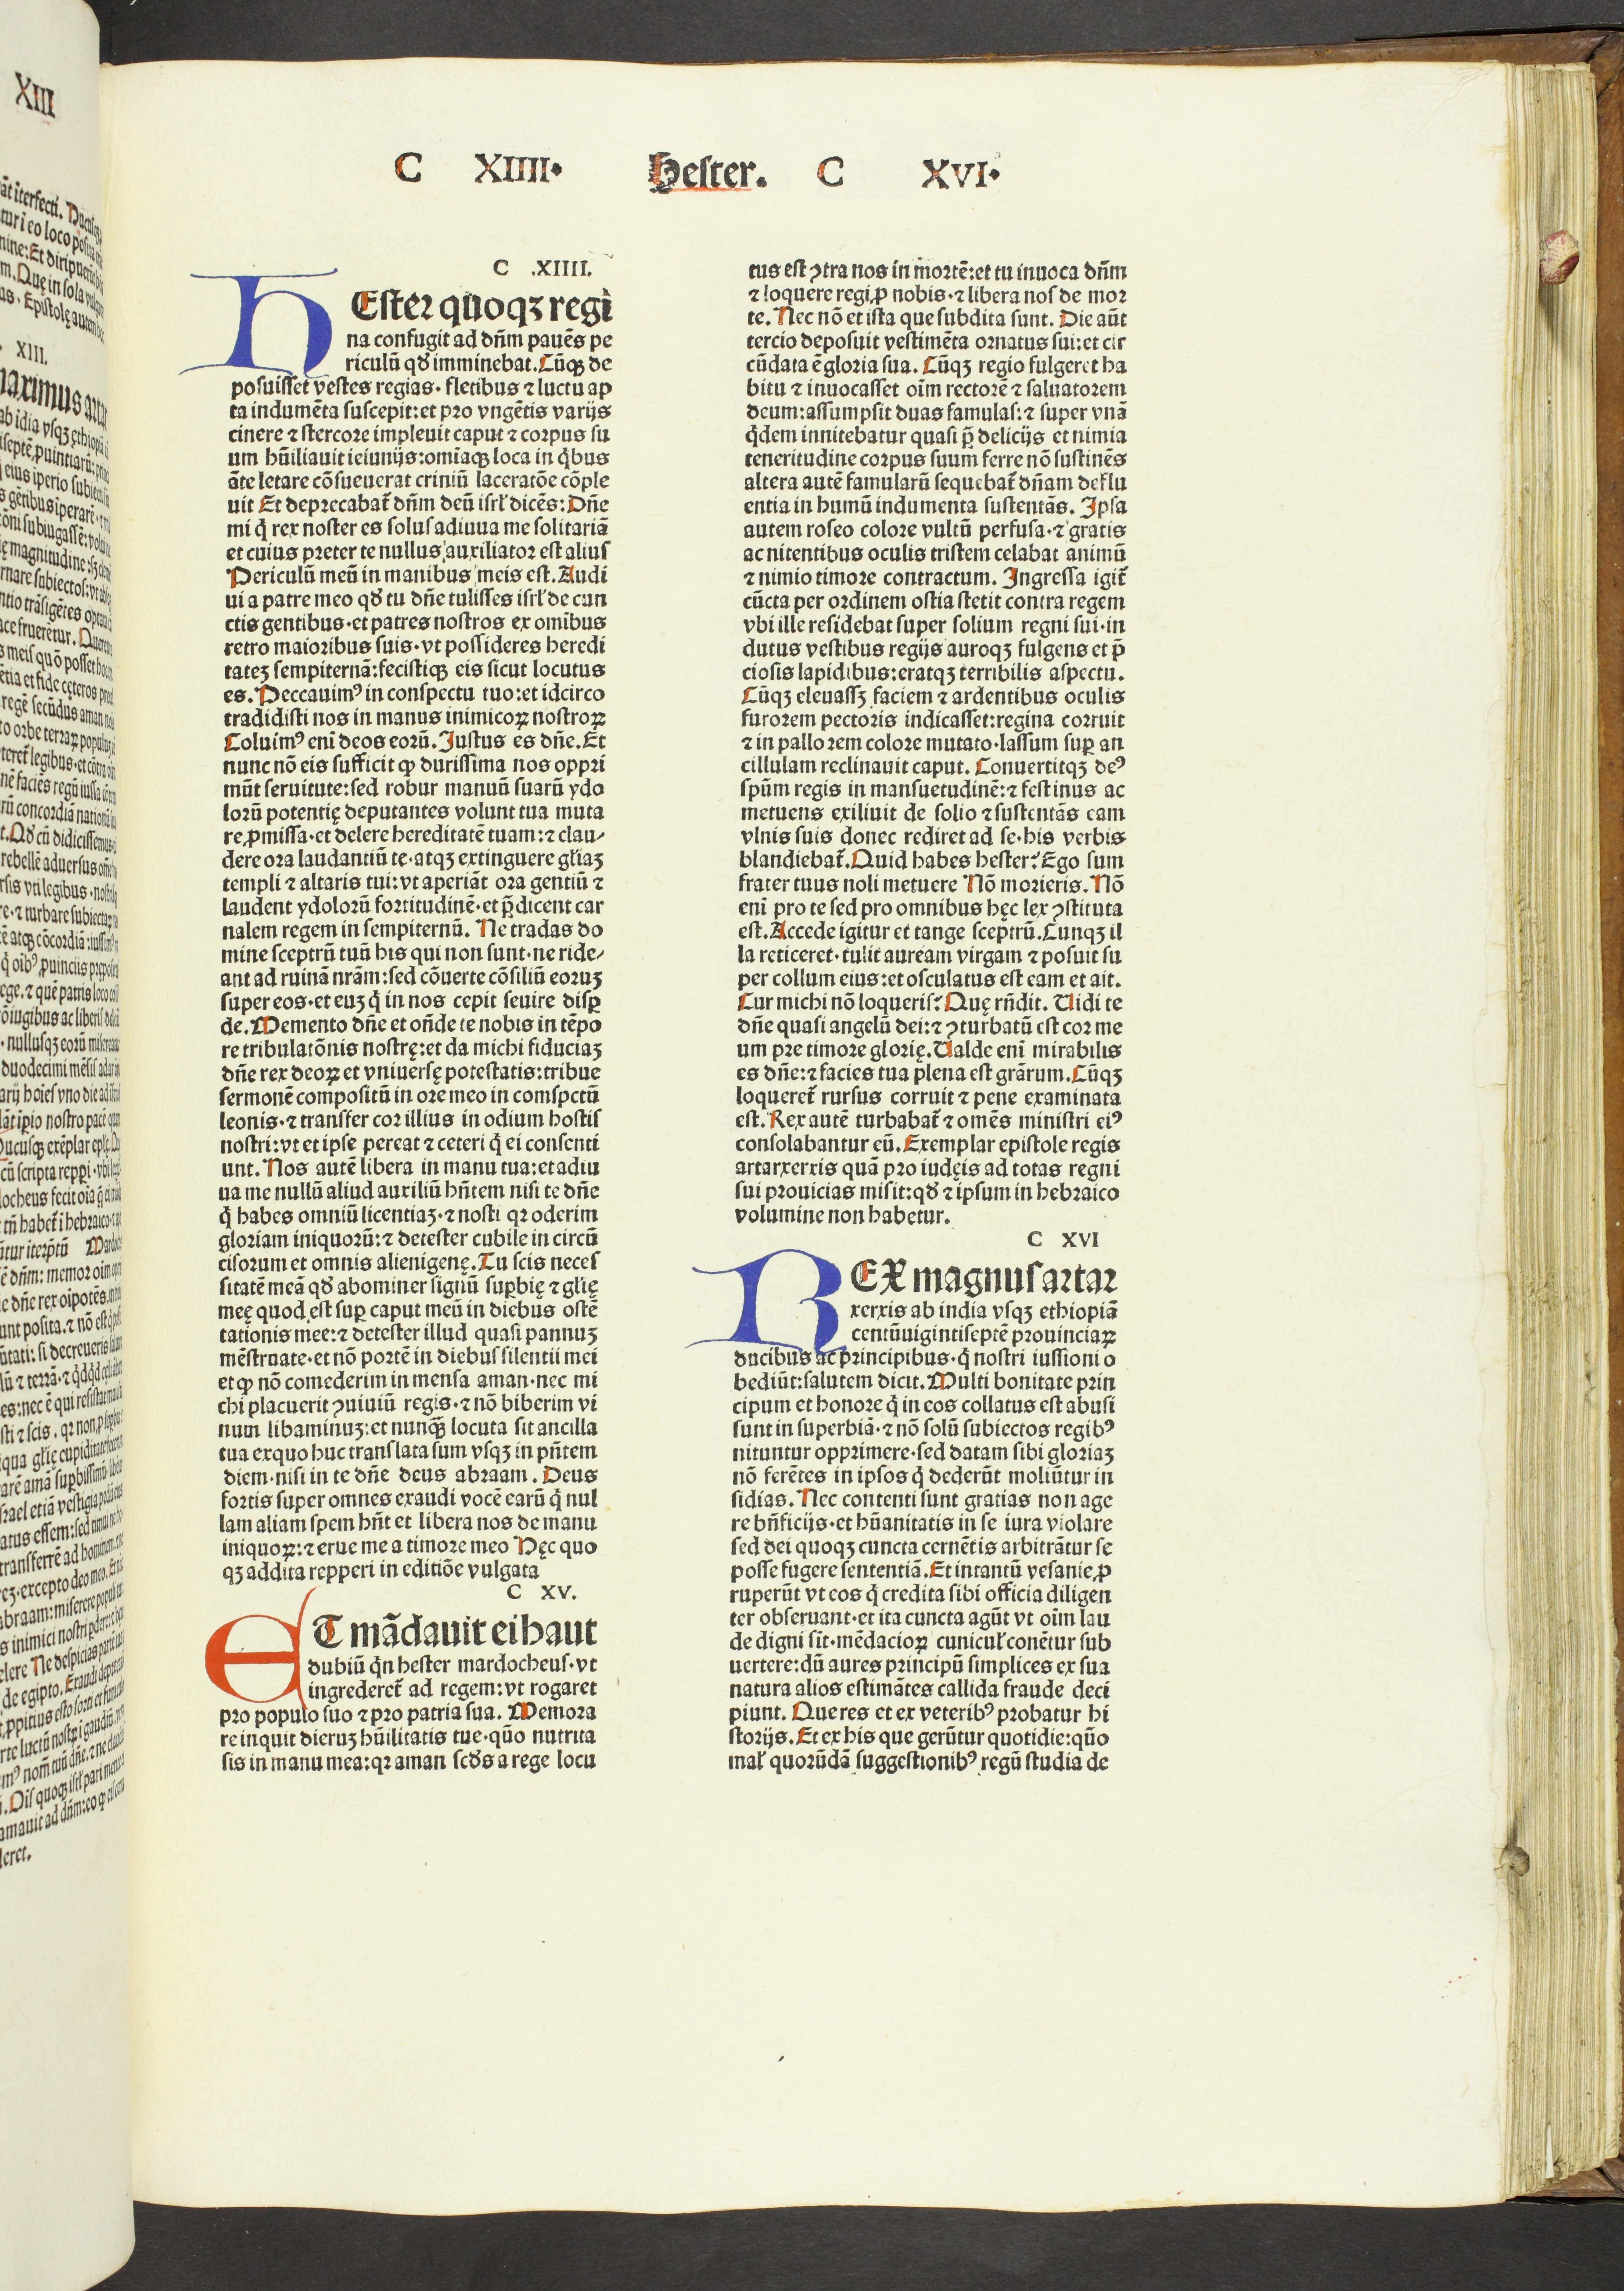 XIII
C XIIII· Hester. C XVI·
C .XIIII.
HEster quoqꝫ regi
na confugit ad dn̄m pauēs pe
riculū qd̛ imminebat. Cūqꝫ de
posuisset vestes regias· fletibus ⁊ luctu ap
ta indumēta suscepit: et pro vngētis varijs
cinere ⁊ stercore impleuit caput ⁊ corpus su
um hūiliauit ieiunijs: omīaqꝫ loca in q̄bus
āte letare cōsueuerat criniū laceratōe cōple
uit Et deprecabat̄ dn̄m deū isrl̄ dicēs: Dn̄e
mi q̄ rex noster es solus adiuua me solitariā
et cuius preter te nullus auxiliator est alius
Periculū meū in manibus meis est. Audi
ui a patre meo qd̛ tu dn̄e tulisses isrl̄ de cun
ctis gentibus· et patres nostros ex omībus
retro maioribus suis· vt possideres heredi
tateꝫ sempiternā: fecistiqꝫ eis sicut locutus
es. Peccauimꝰ in conspectu tuo: et idcirco
tradidisti nos in manus inimicoꝝ nostroꝝ
Coluimꝰ enī deos eorū. Justus es dn̄e. Et
nunc nō eis sufficit ꝙ durissima nos oppri
mūt seruitute: sed robur manuū suarū ydo
lorū potentię deputantes volunt tua muta
re ꝓmissa· et delere hereditatē tuam: ⁊ clau⸗
dere ora laudantiū te· atqꝫ extinguere gl̄iaꝫ
templi ⁊ altaris tui: vt aperiāt ora gentiū ⁊
laudent ydolorū fortitudinē· et p̄dicent car
nalem regem in sempiternū. Ne tradas do
mine sceptrū tuū his qui non sunt· ne ride⸗
ant ad ruinā nrām: sed cōuerte cōsiliū eoruꝫ
super eos· et euꝫ q̄ in nos cepit seuire disꝑ
de. Memento dn̄e et on̄de te nobis in tēpo
re tribulatōnis nostrę: et da michi fiduciaꝫ
dn̄e rex deoꝝ et vniuersę potestatis: tribue
sermonē compositū in ore meo in comspctū
leonis· ⁊ transfer cor illius in odium hostis
nostri: vt et ipse pereat ⁊ ceteri q̄ ei consenti
unt. Nos autē libera in manu tua: et adiu
ua me nullū aliud auxiliū hn̄tem nisi te dn̄e
q̄ habes omniū licentiaꝫ· ⁊ nosti qꝛ oderim
gloriam iniquorū: ⁊ detester cubile in circū
cisorum et omnis alienigenę. Tu scis neces
sitatē meā qd̛ abominer signū suꝑbię ⁊ gl̄ię
meę quod est suꝑ caput meū in diebus ostē
tationis mee: ⁊ detester illud quasi pannuꝫ
mēstruate· et nō portē in diebus silentii mei
et ꝙ nō comederim in mensa aman· nec mi
chi placuerit ꝯuiuiū regis· ⁊ nō biberim vi
num libaminuꝫ: et nunq̄ꝫ locuta sit ancilla
tua exquo huc translata sum vsqꝫ in pn̄tem
diem· nisi in te dn̄e deus abraam. Deus
fortis super omnes exaudi vocē earū q̄ nul
lam aliam spem hn̄t et libera nos de manu
iniquoꝝ: ⁊ erue me a timore meo Nęc quo
qꝫ addita repperi in editiōe vulgata
C XV.
ET mādauit ei haut
dubiū q̄n hester mardocheus· vt
ingrederet̄ ad regem: vt rogaret
pro populo suo ⁊ pro patria sua. Memora
re inquit dieruꝫ hūilitatis tue· quō nutrita
sis in manu mea: qꝛ aman scd̛s a rege locu
tus est ꝯtra nos in mortē: et tu inuoca dn̄m
⁊ loquere regi ꝓ nobis· ⁊ libera nos de mor
te. Nec nō et ista que subdita sunt. Die aūt
tercio deposuit vestimēta ornatus sui: et cir
cūdata ē gloria sua. Cūqꝫ regio fulgeret ha
bitu ⁊ inuocasset oīm rectorē ⁊ saluatorem
deum: assumpsit duas famulas: ⁊ super vnā
q̄dem innitebatur quasi p̄ delicijs et nimia
teneritudine corpus suum ferre nō sustinēs
altera autē famularū sequebat̄ dn̄am deflu
entia in humū indumenta sustentās. Ipsa
autem roseo colore vultū perfusa· ⁊ gratis
ac nitentibus oculis tristem celabat animū
⁊ nimio timore contractum. Ingressa igit̄
cūcta per ordinem ostia stetit contra regem
vbi ille residebat super solium regni sui· in
dutus vestibus regijs auroqꝫ fulgens et p̄
ciosis lapidibus: eratqꝫ terribilis aspectu.
Cūqꝫ eleuassꝫ faciem ⁊ ardentibus oculis
furorem pectoris indicasset: regina corruit
⁊ in pallorem colore mutato· lassum suꝑ an
cillulam reclinauit caput. Conuertitqꝫ deꝰ
spūm regis in mansuetudinē: ⁊ festinus ac
metuens exiliuit de solio ⁊ sustentās eam
vlnis suis donec rediret ad se· his verbis
blandiebat̄. Quid habes hester? Ego sum
frater tuus noli metuere Nō morieris. Nō
enī pro te sed pro omnibus hęc lex ꝯstituta
est. Accede igitur et tange sceptrū. Cunqꝫ il
la reticeret· tulit auream virgam ⁊ posuit su
per collum eius: et osculatus est eam et ait.
Cur michi nō loqueris? Quę rn̄dit. Uidi te
dn̄e quasi angelū dei: ⁊ ꝯturbatū est cor me
um pre timore glorię. Ualde enī mirabilis
es dn̄e: ⁊ facies tua plena est grārum. Cūqꝫ
loqueret̄ rursus corruit ⁊ pene examinata
est. Rex autē turbabat̄ ⁊ omēs ministri eiꝰ
consolabantur eū. Exemplar epistole regis
artarxerxis quā pro iudęis ad totas regni
sui prouicias misit: qd̛ ⁊ ip̄sum in hebraico
volumine non habetur.
C XVI
REX magnus artar
xerxis ab india vsqꝫ ethiopiā
centūuigintiseptē prouinciaꝝ
ducibus ac principibus· q̄ nostri iussioni o
bediūt: salutem dicit. Multi bonitate prin
cipum et honore q̄ in eos collatus est abusi
sunt in superbiā· ⁊ nō solū subiectos regibꝰ
nituntur opprimere· sed datam sibi gloriaꝫ
nō ferētes in ipsos q̄ dederūt moliūtur in
sidias. Nec contenti sunt gratias non age
re bn̄ficijs· et hūanitatis in se iura violare
sed dei quoqꝫ cuncta cernētis arbitrātur se
posse fugere sententiā. Et intantū vesanie ꝓ
ruperūt vt eos q̄ credita sibi officia diligen
ter obseruant· et ita cuncta agūt vt oīm lau
de digni sit· mēdacioꝝ cunicul̄ conētur sub
uertere: dū aures principū simplices ex sua
natura alios estimātes callida fraude deci
piunt. Que res et ex veteribꝰ probatur hi
storijs. Et ex his que gerūtur quotidie: quō
mal̄ quorūdā suggestionibꝰ regū studia de